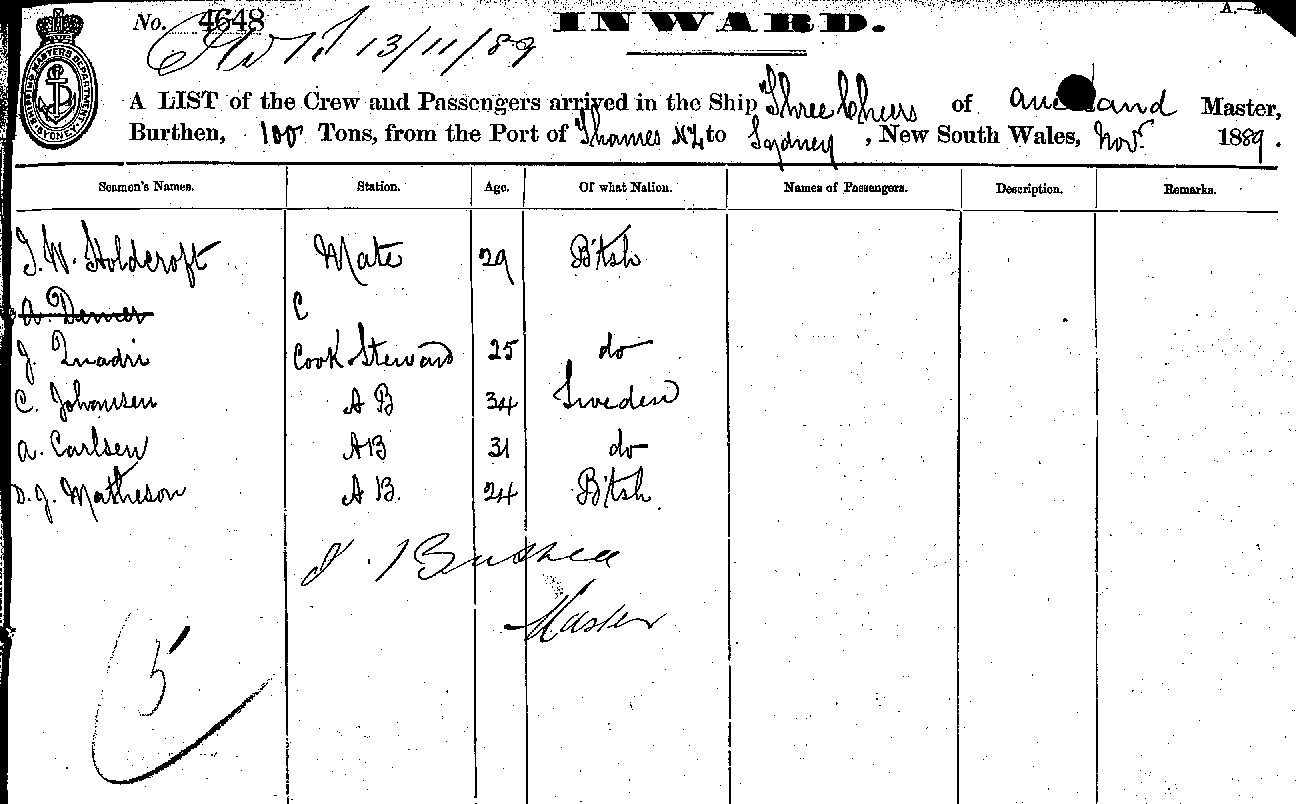 No. 4648 INWARD.
13/11/89
A LIST of the Crew and Passengers arrived in the Ship Three Cheers of Auckland Master,
Burthen, 100 Tons, from the Port of Thames NZ to Sydney, New South Wales, Novr. 1889.
Seamen's Names. Station. Age. Of what Nation. Names of Passengers. Description. Remarks.
J. W. Holdcroft Mate 29 B'tsh
A. Demer C
J. Quadri Cook Steward 25 do
C. Johansen A B 34 Sweden
A. Carlsen AB 31 do
D. J. Matheson A B. 24 B'tsh
Master
5